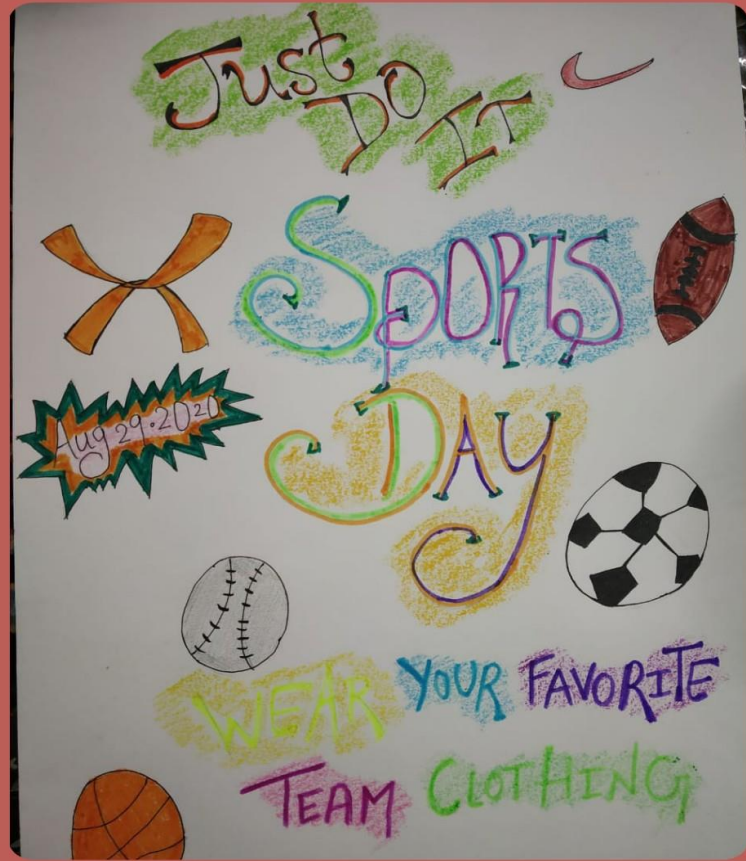 Just
Do It
SpORTS
Aug 29.2020
DAy
WEAR YOUR FAVORITE
TEAM CLOTHING